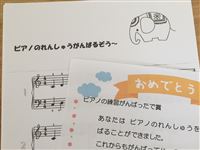 ピアノのれんしゅうがんばるぞう～
1
2
おめでとう
ピアノの練習がんばったで賞
あなたは ピアノのれんしゅうを
ばることができました。
これからもがんばって